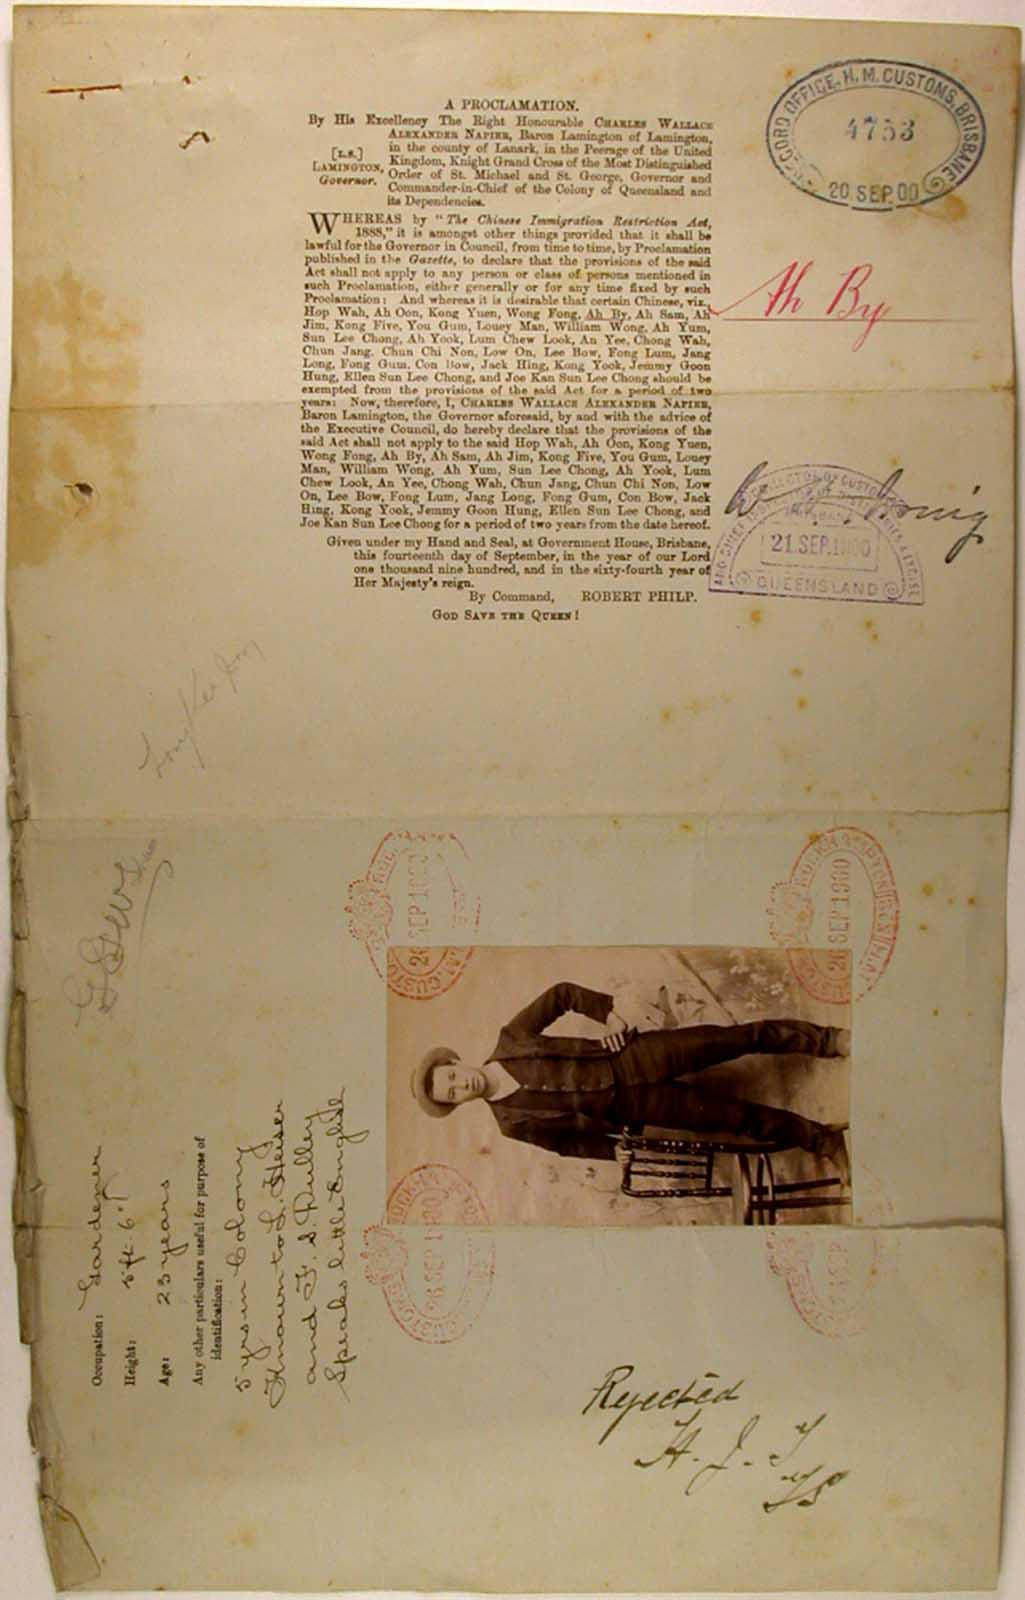 A PROCLAMATION.
By His Excellency The Right Honourable CHARLES WALLACE
ALEXANDER NAPIER, Baron Lamington of Lamington,
in the county of Lanark, in the Peerage of the United
[L.S.]
LAMINGTON,
Governor.
Kingdom, Knight Grand Cross of the Most Distinguished
Order of St. Michael and St. George, Governor and
Commander-in-Chief of the Colony of Queensland and
its Dependencies.
WHEREAS by "The Chinese Immigration Restriction Act,
1888," it is amongst other things provided that it shall be
lawful for the Governor in Council, from time to time, by Proclamation
published in the Gazette, to declare that the provisions of the said
Act shall not apply to any person or class of persons mentioned in
such Proclamation, either generally or for any time fixed by such
Proclamation: And whereas it is desirable that certain Chinese, viz.,
Hop Wah, Ah Oon, Kong Yuen, Wong Fong, Ah By, Ah Sam, Ah
Jim, Kong Five, You Gum, Louey Man, William Wong, Ah Yum,
Sun Lee Chong, Ah Yook, Lum Chew Look, An Yee, Chong Wah,
Chun Jang, Chun Chi Non, Low On, Lee Bow, Fong Lum, Jang
Long, Fong Gum, Con Bow, Jack Hing, Kong Yook, Jemmy Goon
Hung, Ellen Sun Lee Chong, and Joe Kan Sun Lee Chong should be
exempted from the provisions of the said Act for a period of two
years: Now, therefore, I, CHARLES WALLACE ALEXANDER NAPIER,
Baron Lamington, the Governor aforesaid, by and with the advice of
the Executive Council, do hereby declare that the provisions of the
said Act shall not apply to the said Hop Wah, Ah Oon, Kong Yuen,
Wong Fong, Ah By, Ah Sam, Ah Jim, Kong Five, You Gum, Louey
Man, William Wong, Ah Yum, Sun Lee Chong, Ah Yook, Lum
Chew Look, An Yee, Chong Wah, Chun Jang, Chun Chi Non, Low
On, Lee Bow, Fong Lum, Jang Long, Fong Gum, Con Bow, Jack
Hing, Kong Yook, Jemmy Goon Hung, Ellen Sun Lee Chong, and
Joe Kan Sun Lee Chong for a period of two years from the date hereof.
Given under my Hand and Seal, at Government House, Brisbane,
this fourteenth day of September, in the year of our Lord
one thousand nine hundred, and in the sixty-fourth year of
Her Majesty's reign.
By Command, ROBERT PHILP.
GOD SAVE THE QUEEN!
RECORD OFFICE, H.M. CUSTOMS, BRISBANE
4753
20 SEP.00
Ah By
21.SEP.1900
QUEENSLAND
Occupation: Gardener
Height: 5 ft. 6"
Age: 23 years
Any other particulars useful for purpose of
identification:
5 yrs in Colony
Known to L. Heiser
and F. S. Rulley
Speaks little English
26 SEP 1900
26 SEP 1900
26 SEP 1900
26 SEP
Rejected
H. J. T